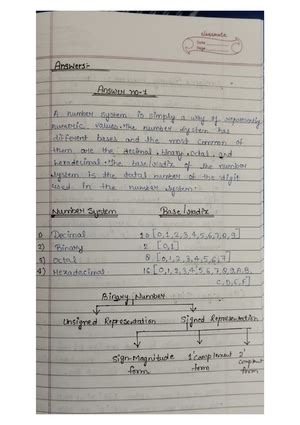 classmate
Date
Page
Answers:-
Answer no-1
A number system is simply a way of representing
numeric values. The number system has
different bases and the most common of
them are the decimal, binary, octal, and
hexadecimal. The base/radix of the number
system is the total number of the digit
used in the number system.
Number System Base/radix
1) Decimal 10 [0,1,2,3,4,5,6,7,8,9]
2) Binary 2 [0,1]
3) Octal 8 [0,1,2,3,4,5,6,7]
4) Hexadecimal 16 [0,1,2,3,4,5,6,7,8,9,A,B,
C,D,E,F]
Binary Number
Unsigned Representation Signed Representation
Sign-Magnitude form
1' complement form
2' complement form